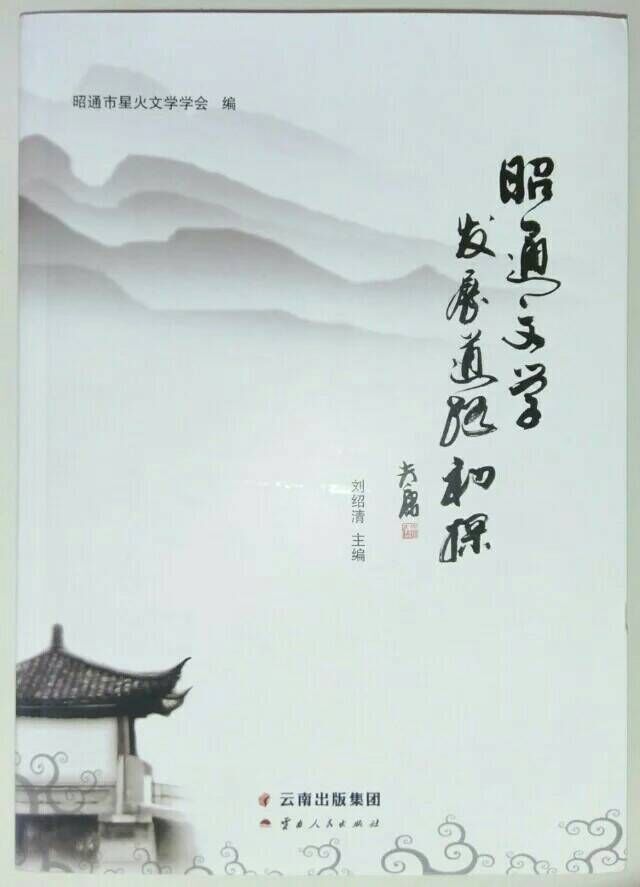 昭通市星火文学学会 编
昭通文学
发展道路初探
刘绍清 主编
云南出版集团
云南人民出版社